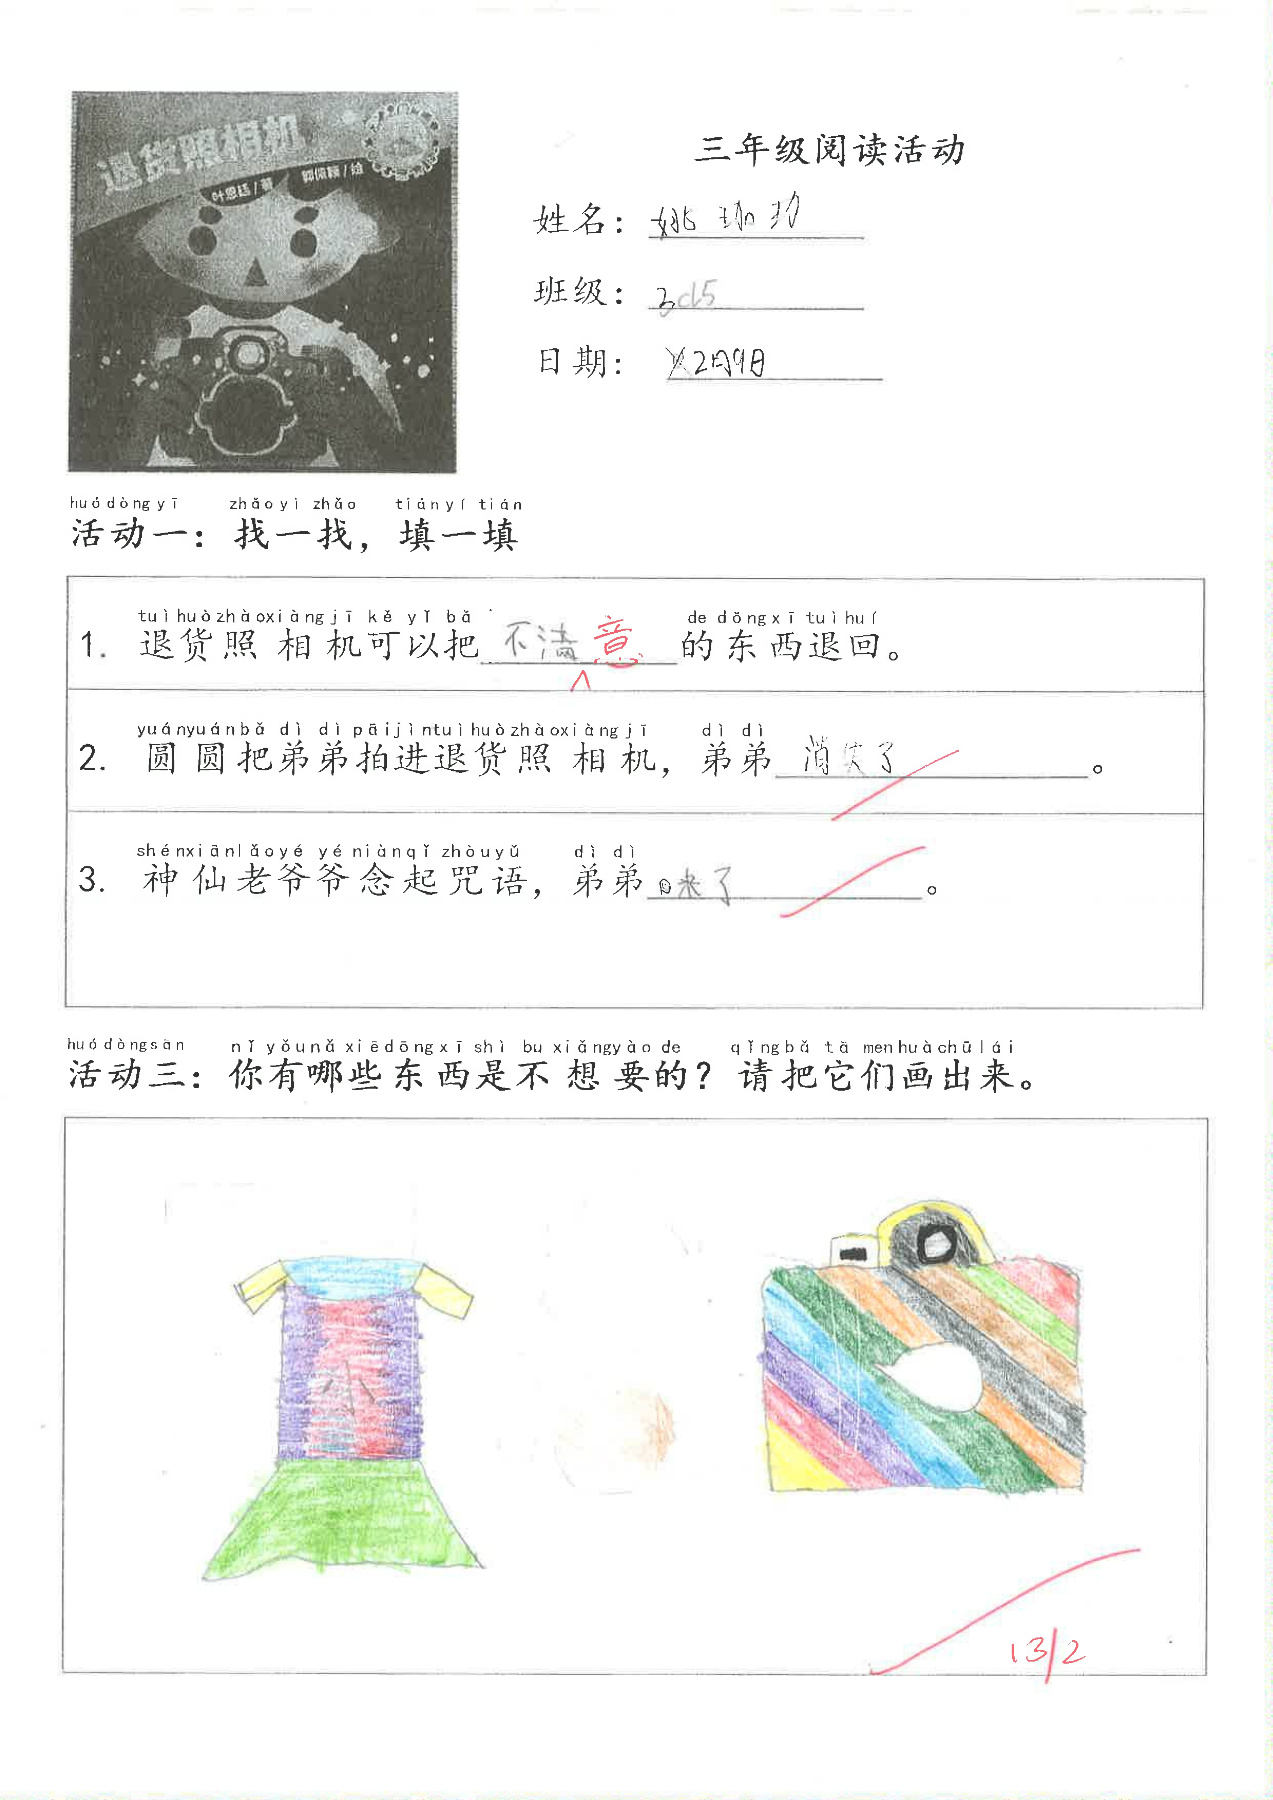 退货照相机
叶恩廷/著 郭依颖/绘
三年级阅读活动
姓名：姚珈
班级：3
日期：2月9日
huódòngyī zhǎoyìzhǎo tiányítián
活动一：找一找，填一填
tuìhuòzhàoxiàngjī kě yǐ bǎ de dōngxī tuìhuí
1. 退货照相机可以把不满意的东西退回。
yuányuánbǎ dì dì pāijìntuìhuòzhàoxiàngjī dì dì
2. 圆圆把弟弟拍进退货照相机，弟弟消失了。
shénxiānlǎoyé yé niànqǐ zhòuyǔ dì dì
3. 神仙老爷爷念起咒语，弟弟回来了。
huódòngsān nǐ yǒunǎ xiēdōngxī shì bu xiǎngyào de qǐngbǎ tā menhuàchūlái
活动三：你有哪些东西是不想要的？请把它们画出来。
小
13/2